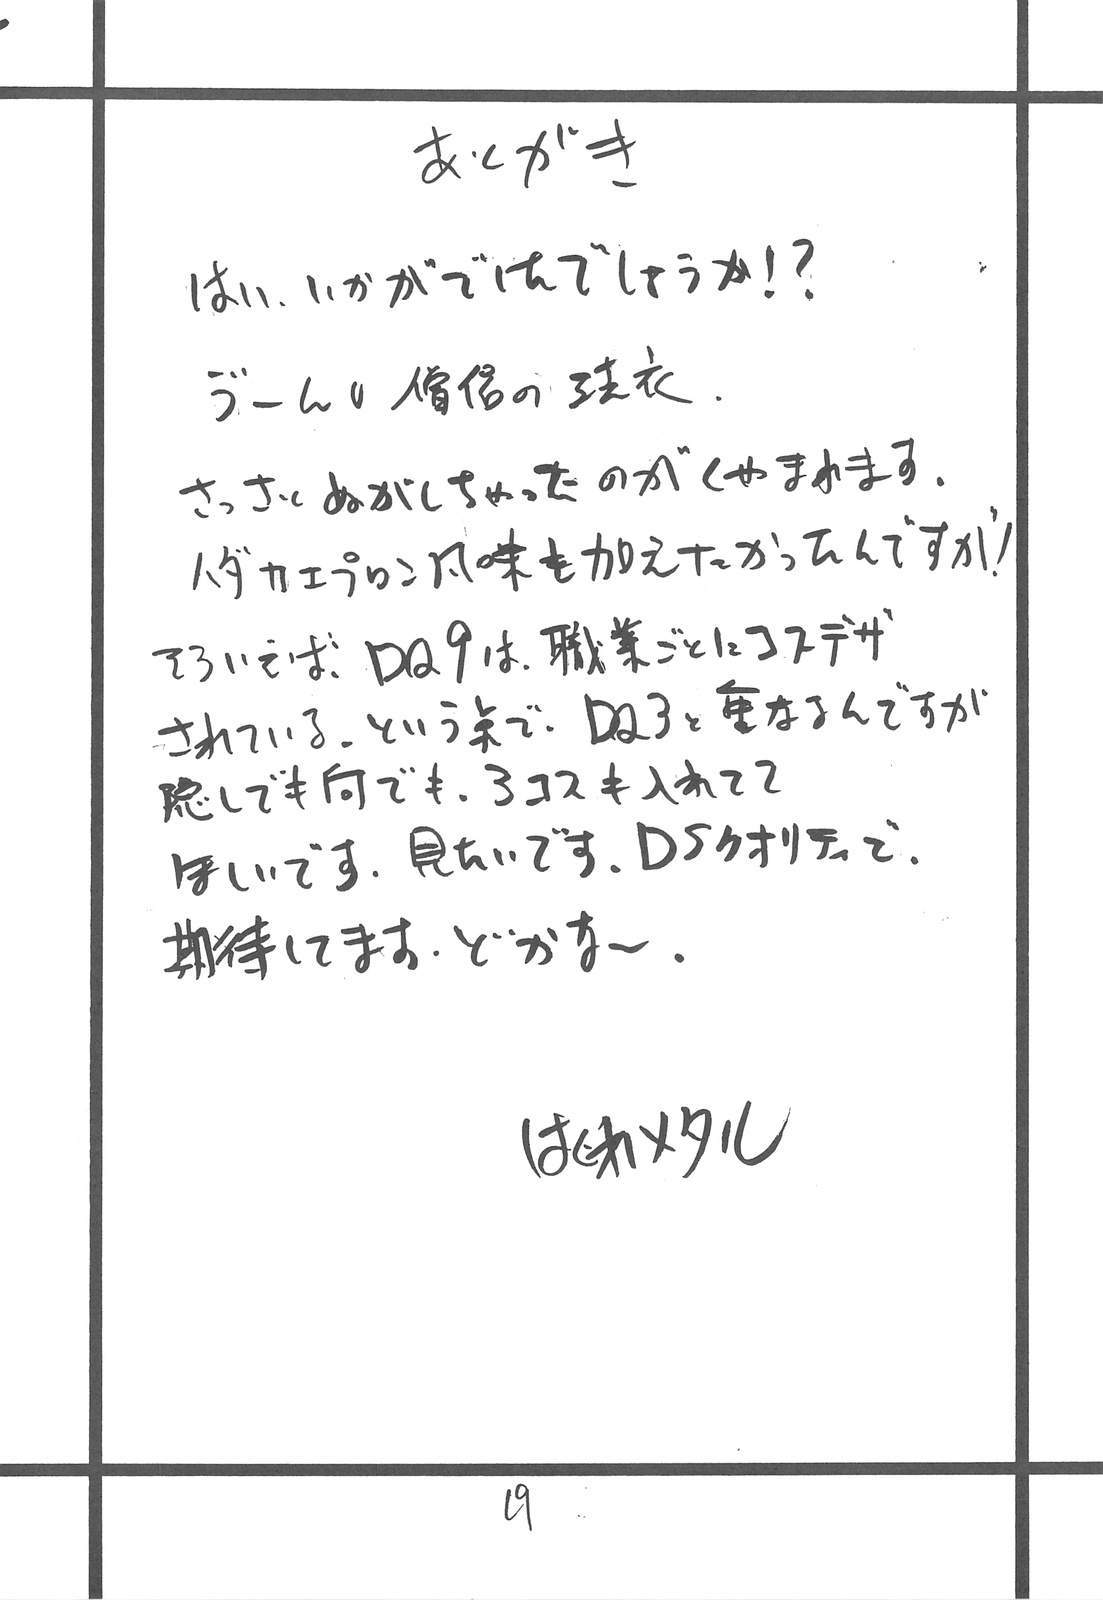 あとがき
はい、いかがでしたでしょうか!?
うーん 僧侶の 衣.
さっさとぬがしちゃったのがくやまれます.
ハダカエプロン風味も加えたかったんですが!
そういえば、DQ9は、職業ごとにコスデザ
されている.という事で、DQ3と重なるんですが
隠しでも何でも.3コスも入れてて
ほしいです.見たいです.DSクオリティで.
期待してます.どかな〜.
はぐれメタル
19